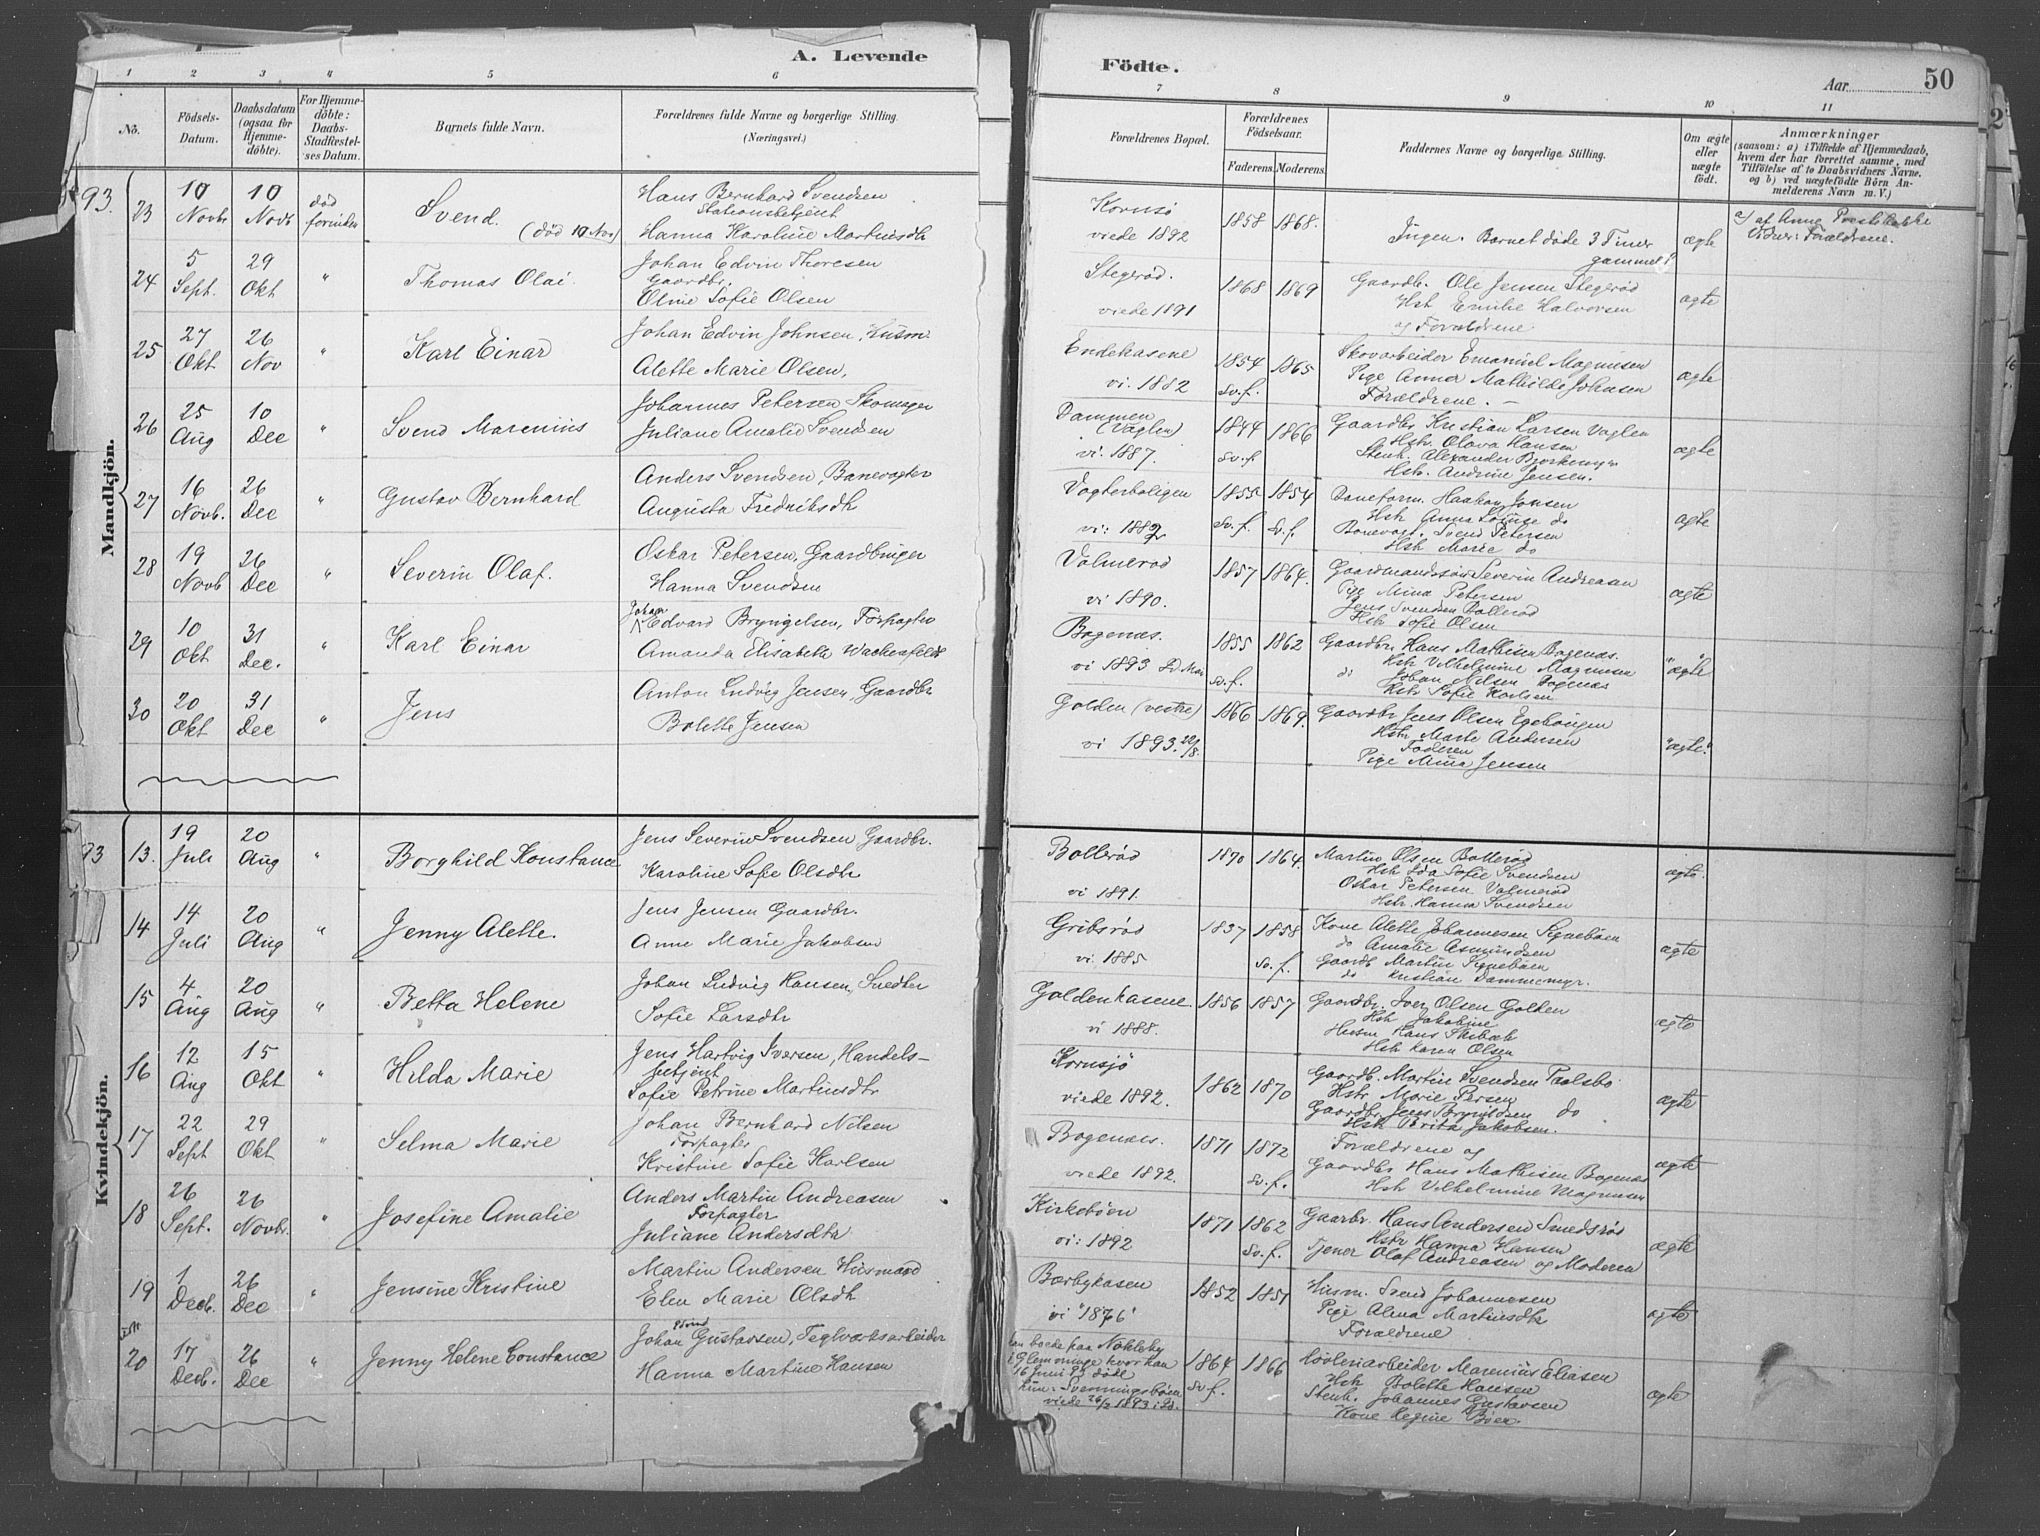 A. Levende
Födte.
Aar
50
1 2 3 4 5 6 7 8 9 10 11
No.
Födsels-
Datum.
Daabsdatum
(ogsaa for
Hjemme-
döbte).
For Hjemme-
döbte:
Daabs-
Stadfæstel-
ses Datum.
Barnets fulde Navn.
Forældrenes fulde Navne og borgerlige Stilling.
(Næringsvei.)
Forældrenes Bopæl.
Forældrenes
Födselsaar.
Faderens. Moderens.
Faddernes Navne og borgerlige Stilling.
Om ægte
eller
uægte
født.
Anmærkninger
(saasom: a) i Tilfælde af Hjemmedaab,
hvem der har forrettet samme, med
Tilföielse af to Daabsvidners Navne.
og b) ved uægtefödte Börn An-
melderens Navn m. V.)
Mandkjön.
93.
23 10 Novbr 10 Novb død forinden
Svend.
(død 10 Nov)
Hans Bernhard Svendsen
Stationsbetjent
Hanna Karoline Martinsdtr
Kornsø
viede 1892
1858 1868.
Ingen. Barnet døde 3 Timer
gammel.
ægte
a) af Anne
Vidner: Forældrene.
24 5 Sept. 29 Okt "
Thomas Olai
Johan Edvin Thoresen
Gaardbr.
Oline Sofie Olsen
Stegerød.
viede 1891
1868 1869
Gaardb. Ole Jensen Stegerød
Hst Emilie Halvorsen
og Forældrene
ægte
25 27 Okt 26 Nov "
Karl Einar
Johan Edvin Johnsen, Husm
Alette Marie Olsen,
Endekasene
vi. 1882
1854 1865
Sv.f.
Skovarbeider Emanuel Magnusen
Pige Anna Mathilde Johansen
Forældrene. —
ægte
26 25 Aug 10 Dec "
Svend Marenius
Johannes Petersen Skomager
Juliane Amalie Svendsen
Dammen
(Vaglen)
vi. 1887.
1844 1866
Sv.f
Gaardbr Kristian Larsen Vaglen
Hstr. Olava Hansen
Stenh. Alexander Bjørkemyr
Hstr. Andrine Jensen.
ægte
27 16 Novb. 26 Dec "
Gustav Bernhard
Anders Svendsen, Banevogter
Augusta Fredriksdtr
Vogterboligen
vi: 1882
1855 1854
Sv.f. Sv.f.
Baneform. Haakon Jonsen
Hstr Anna Lovise do
Banevogt. Svend Petersen
Hstr Marie do
ægte
28 19 Novb 26 Dec "
Severin Olaf.
Oskar Petersen, Gaardbruger
Hanna Svendsen
Valmerød
vi 1890.
1857 1864.
Gaardmandssøn Severin Andreasen
Pige Mina Petersen
Jens Svendsen Bollerød
Hstr Sofie Olsen
ægte
29 10 Okt 31 Dec. "
Karl Einar
Johan
Edvard Bryngelsen, Forpagter
Amanda Elisabeth Wachenfeldt
Bogenæs.
vi 1893
1855 1862
Sv.f.
Gaardbr Hans Mathisen Bogenæs.
Hstr Vilhelmine Magnusen
do Johan Nilsen Bogenæs
Hstr Sofie Karlsen
"ægte"
30 20 Okt 31 Dec "
Jens
Anton Ludvig Jensen, Gaardbr
Bolette Jensen
Golden (vestre)
vi 1893. 22/8.
1866 1869.
Gaardbr Jens Olsen Egebungen
Hstr Marte Andersen
Faderen
Pige Anna Jensen
"ægte."
Kvindekjön.
93
13. 19 Juli 20 Aug "
Borghild Konstance
Jens Severin Svendsen Gaardbr.
Karoline Sofie Olsdtr
Bollerød
vi 1891.
1870 1864.
Martin Olsen Bollerød
Hstr Ida Sofie Svendsen
Oskar Petersen Valmerød
Hstr. Hanna Svendsen
ægte.
14 14 Juli 20 Aug "
Jenny Alette.
Jens Jensen Gaardbr.
Anne Marie Jakobsen
Gribsrød
vi. 1885
1837 1858
Sv.f.
Kone Alette Johannesen Signebøen
do Amalie Asmundsen
Gaardb Martin Signebøen
do Kristian Dammemyr.
ægte
15 4 Aug 20 Aug "
Betta Helene
Johan Ludvig Hansen, Snedker
Sofie Larsdtr
Goldenkasene
vi 1888.
1856 1857
Gaardbr. Iver Olsen Golden
Hstr Jakobine
Husm Hans Skibæk
Hstr Karen Olsen
ægte
16 12 Aug 15 Okt "
Hilda Marie
Jens Hartvig Iversen, Handels-
betjent
Sofie Petrine Martinsdtr
Kornsjø
viede 1892.
1862 1870
Gaardb. Martin Svendsen Taalsbo
Hstr Marie Persen
Gaardbr Jens Bryndsen do
Hstr Brita Jakobsen.
ægte
17 22 Sept 29 Okt "
Selma Marie
Johan Bernhard Nilsen
Forpagter
Kristine Sofie Karlsen
Bogenæs.
viede 1892.
1871 1872
Sv.f.
Forældrene og
Gaardbr Hans Mathisen Bogenæs
Hstr Vilhelmine Magnusen
ægte
18 26 Sept. 26 Novbr. "
Josefine Amalie
Anders Martin Andreasen
Forpagter
Juliane Andersdtr
Kirkebøen
vi: 1892
1871 1862
Sv.f.
Gaarbr. Hans Andersen Smedsrød
Hstr Hanna Hansen
Tjener Olaf Andreasen og Moderen
ægte
19 1 Decb. 26 Dec "
Jensine Kristine
Martin Andersen Husmand
Elen Marie Olsdtr
Bærbykasen
vi "1876"
1852 1851
Husm. Svend Johannesen
Pige Alma Martinsdtr
Forældrene
ægte
20 17 Decb. 26 Dec "
Jenny Helene Constance
Johan Gustavsen, Teglværksarbeider
Hanna Martine Hansen
han boede paa Nokleby
i Glemminge hvor han
16 Juni 93 døde
hun: Svenningsbøen
viede 26/2 1893 i
1864 1866
Sv.f.
Høvleriarbeider Marenius Eliasen
Hstr Bolette Hansen
Stenh. Johannes Gustavsen
Kone Regine Bøer.
ægte